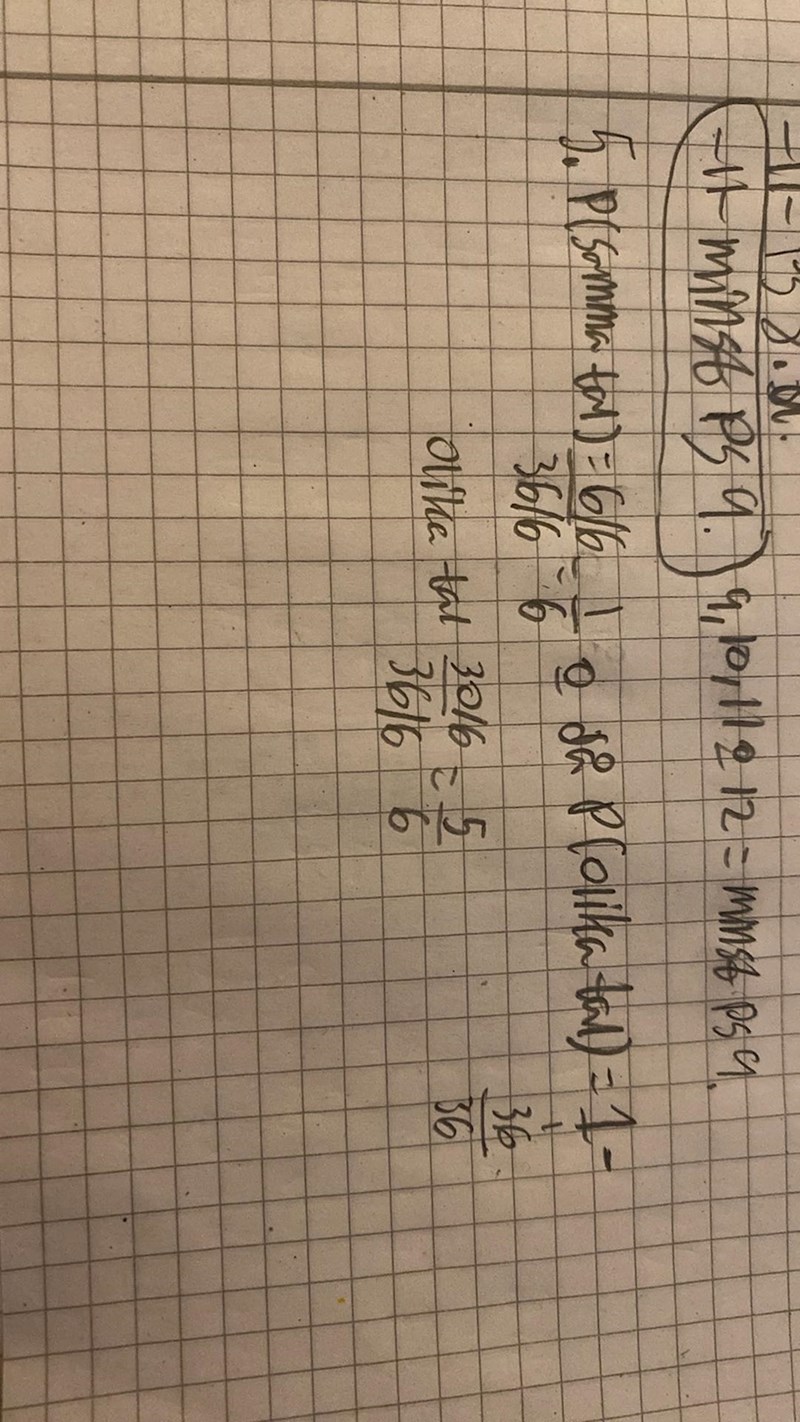 -11- på 8.
-11- minst på 9. 9, 10, 11 o 12 = minst på 9.
5. P(samma tal) = 6/6 / 36/6 = 1/6 o då P(olika tal) = 1 -
36/36
olika tal 30/6 / 36/6 = 5/6